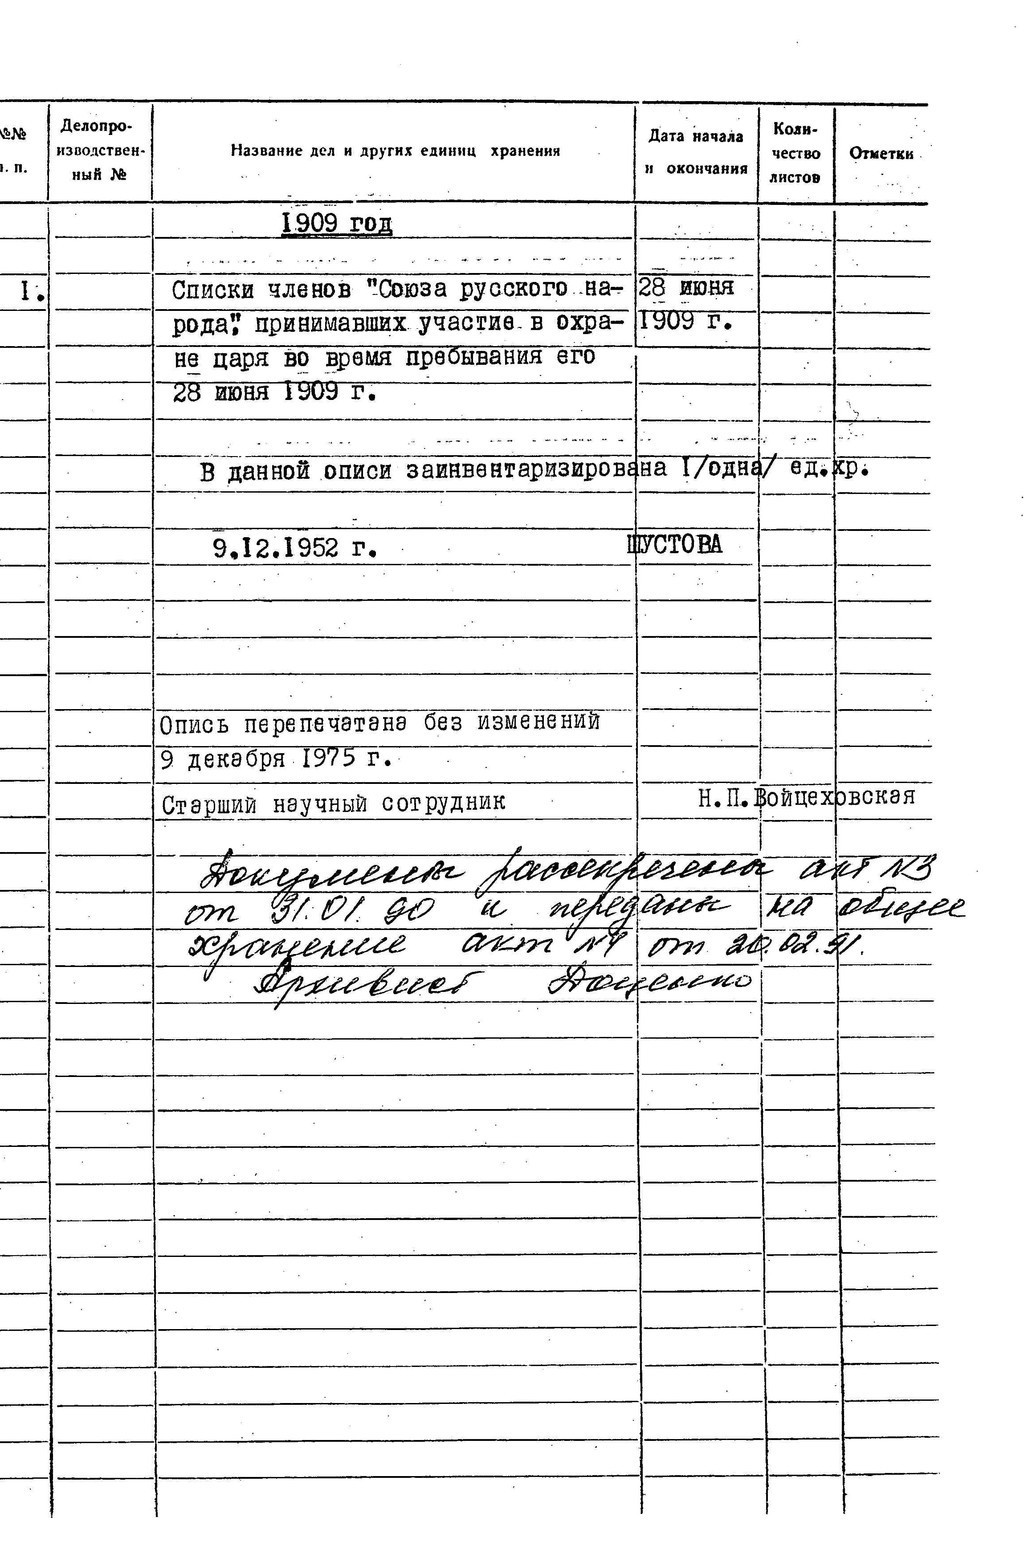 №№ п. п.
Делопро-
изводствен-
ный №
Название дел и других единиц хранения
Дата начала
и окончания
Коли-
чество
листов
Отметки
1909 год
I. Списки членов "Союза русского на- 28 июня
рода", принимавших участие в охра- 1909 г.
не царя во время пребывания его
28 июня 1909 г.
В данной описи заинвентаризирована I/одна/ ед.хр.
9.12.1952 г. ШУСТОВА
Опись перепечатана без изменений
9 декабря 1975 г.
Старший научный сотрудник Н.П.Войцеховская
Документы рассекречены акт №3
от 31.01.90 и переданы на общее
хранение акт №4 от 20.02.91.
Архивист Доценко